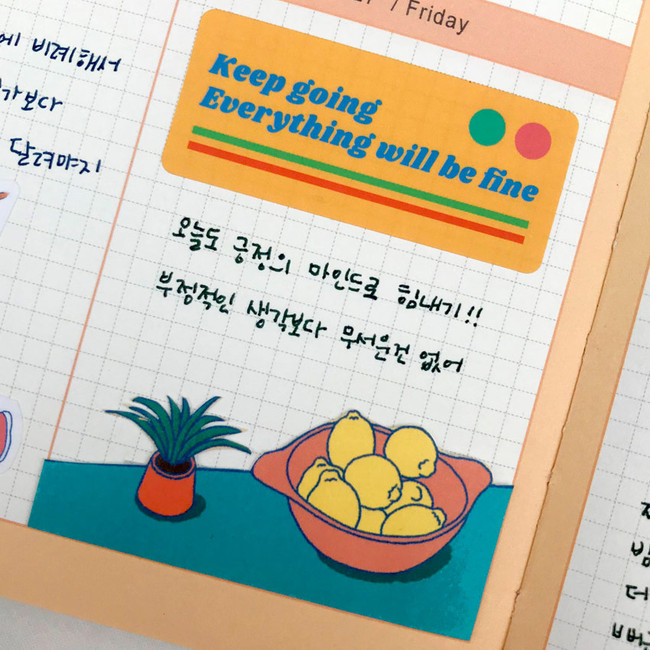 / Friday
에 비례해서
가보다
달려야지
Keep going
Everything will be fine
오늘도 긍정의 마인드로 힘내기!!
부정적인 생각보다 무서운건 없어
더